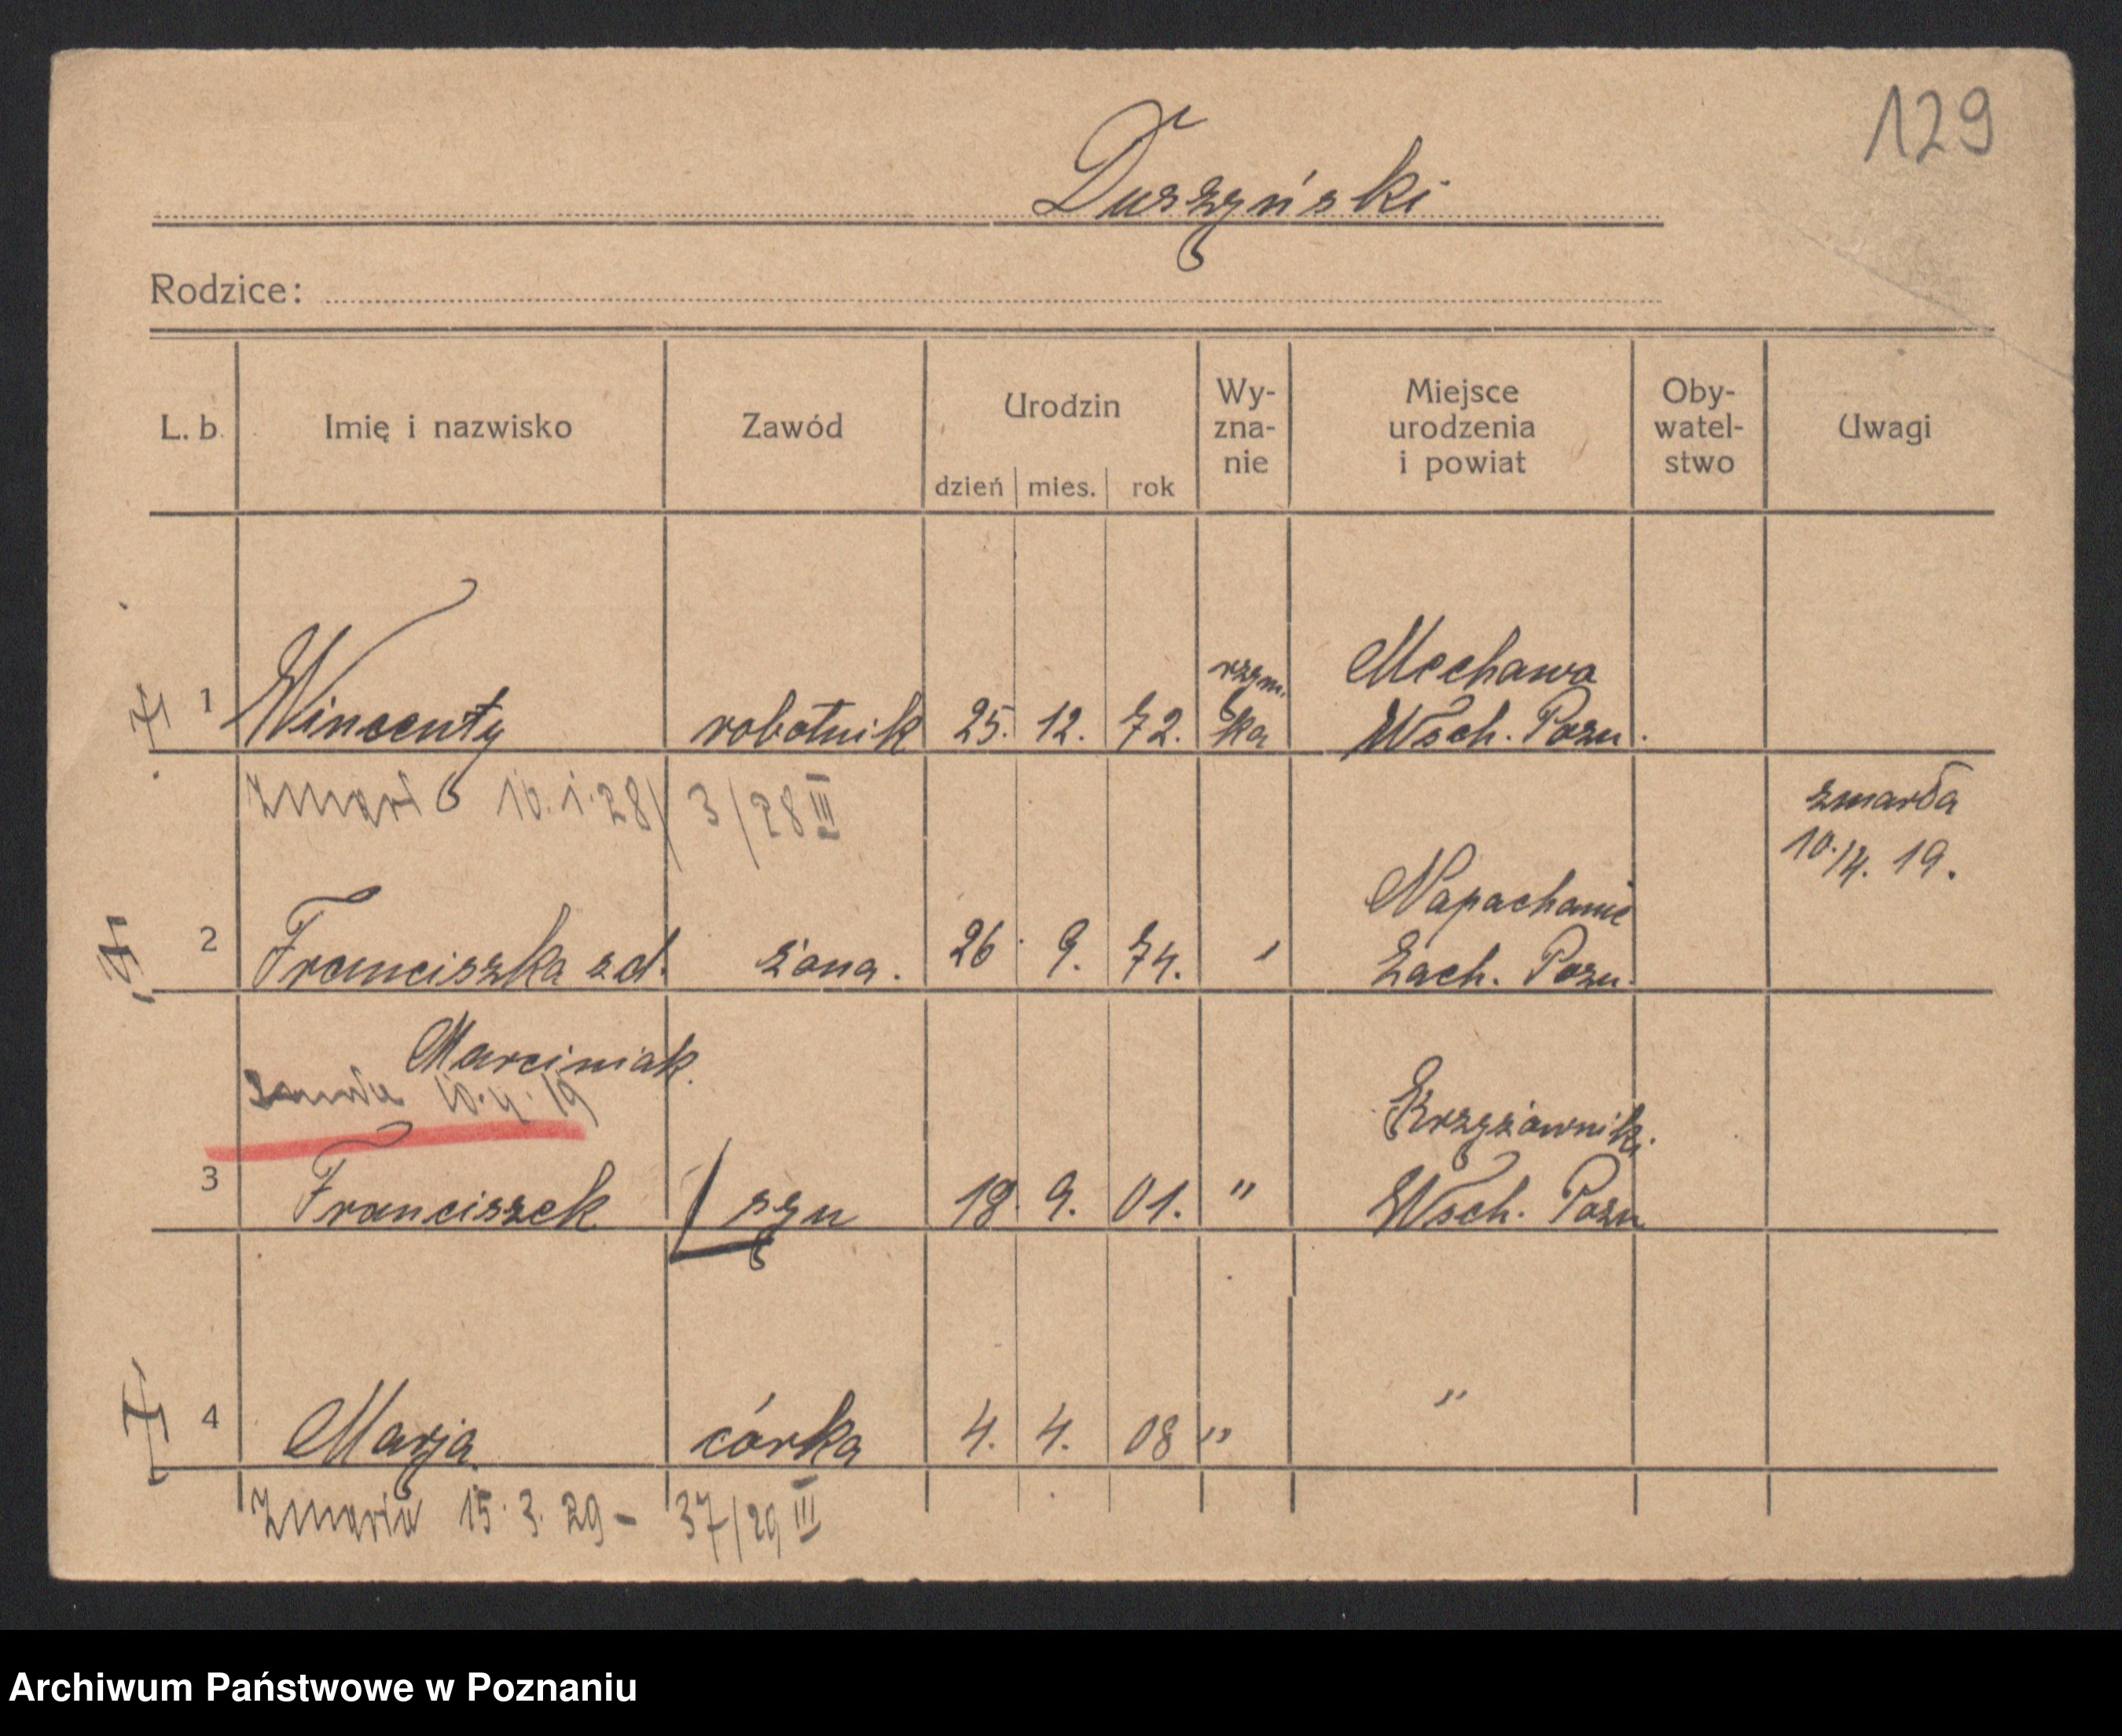 129
Duszyński
Rodzice:
L. b. Imię i nazwisko Zawód Urodzin dzień mies. rok Wy-zna-nie Miejsce urodzenia i powiat Oby-watel-stwo Uwagi
rzym. Mechawa
1 Wincenty robotnik 25. 12. 72. ka Wsch. Pozn.
zmarł 10. 1. 28 / 3/28 III
zmarła
10./4. 19.
Napachanie
2 Franciszka zd. żona. 26. 9. 74. " Zach. Pozn.
Marciniak.
zmarła 10. 4. 19
Krzyżownik.
3 Franciszek syn 18. 9. 01. " Wsch. Pozn
4 Marja córka 4. 4. 08 " "
Zmarła 15. 3. 29 - 37/29 III
Archiwum Państwowe w Poznaniu